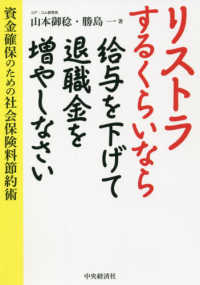 リストラ
するくらいなら
給与を下げて
退職金を
増やしなさい
資金確保のための社会保険料節約術
山本御稔・勝島一 著
中央経済社